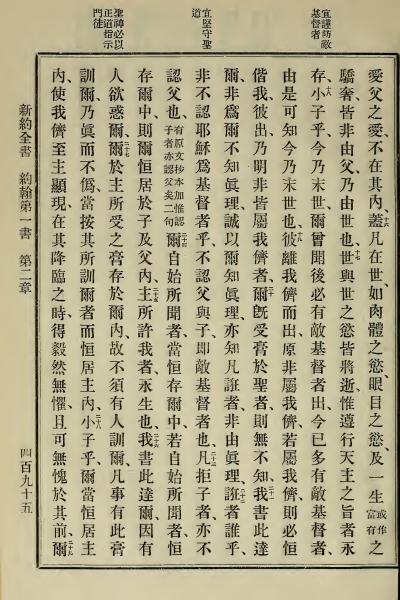 宜謹防敵
基督者
宜堅守聖
道
聖神必以
正道指示
門徒
愛父之愛、不在其內、十六蓋凡在世、如肉體之慾、眼目之慾、及一生或作富有之
驕奢、皆非由父、乃由世也、十七世與世之慾皆將逝、惟遵行天主之旨者永
存、十八小子乎、今乃末世、爾曾聞後必有敵基督者出、今已多有敵基督者、
由是可知今乃末世也、十九彼離我儕而出、原非屬我儕、若屬我儕、則必恒
偕我、彼出、乃明非皆屬我儕者、二十爾旣受膏於聖者、則無不知、二十一我書此達
爾、非爲爾不知眞理、誠以爾知眞理、亦知凡誑者、非由眞理、二十二誑者誰乎、
非不認耶穌爲基督者乎、不認父與子、卽敵基督者也、二十三凡拒子者、亦不
認父也、有原文抄本加惟認子者亦認父矣二句二十四爾自始所聞者、當恒存爾中、若自始所聞者、恒
存爾中、則爾恒居於子及父內、二十五主所許我者、永生也、二十六我書此達爾、因有
人欲惑爾、二十七爾於主所受之膏、存於爾內、故不須有人訓爾、凡事有此膏
訓爾、乃眞而不僞、當按其所訓爾者、而恒居主內、二十八小子乎、爾當恒居主
內、使我儕至主顯現、在其降臨之時、得毅然無懼、且可無愧於其前、二十九爾
新約全書　約翰第一書　第二章　四百九十五